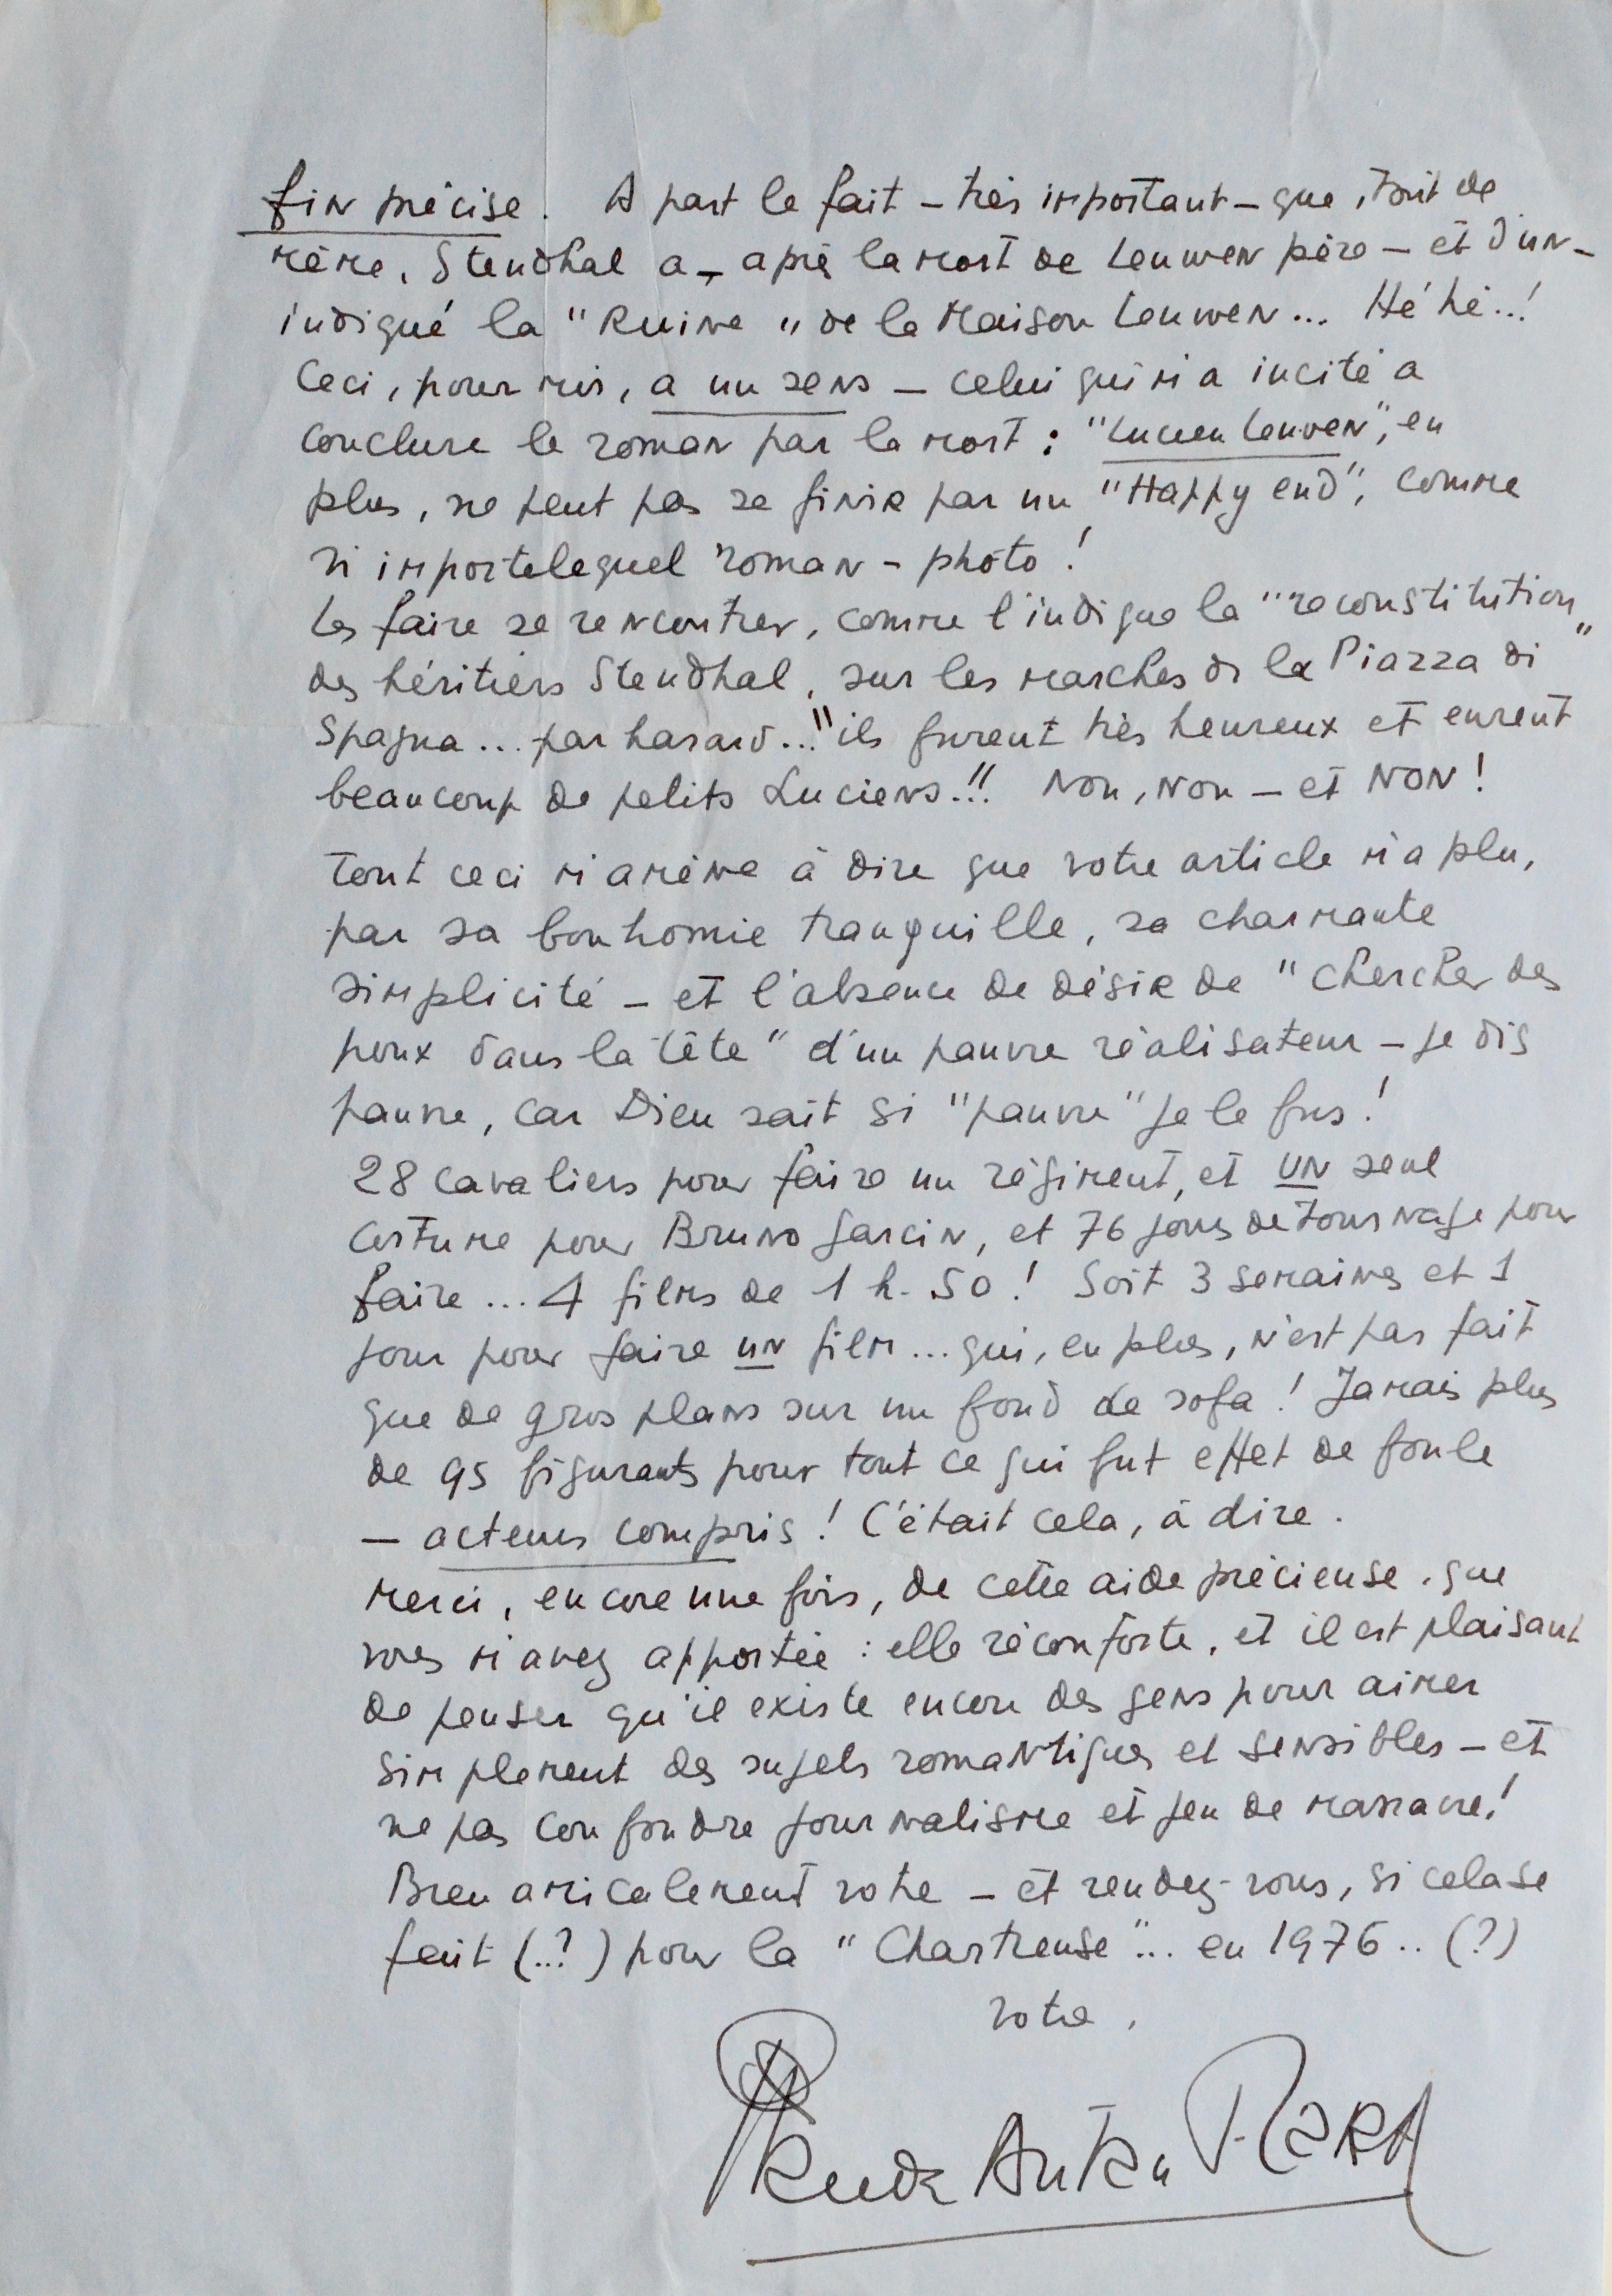 fin précise. A part le fait – très important – que, tout de
même, Stendhal a – après la mort de Leuwen père – et d'un –
indiqué la "Ruine" de la Maison Leuwen... Hé hé..!
Ceci, pour moi, a un sens – celui qui m'a incité a
conclure le roman par la mort : "Lucien Leuwen", en
plus, ne peut pas se finir par un "Happy end", comme
n'importelequel roman-photo !
Les faire se rencontrer, comme l'indique la "reconstitution"
des héritiers Stendhal, sur les marches de la Piazza di
Spagna... par hasard... "ils furent très heureux et eurent
beaucoup de petits Luciens!!! Non, Non – et NON !
Tout ceci m'amène à dire que votre article m'a plu,
par sa bonhomie tranquille, sa charmante
simplicité – et l'absence de désir de "chercher des
poux dans la tête" d'un pauvre réalisateur – je dis
pauvre, car Dieu sait si "pauvre" je le fus !
28 cavaliers pour faire un régiment, et UN seul
costume pour Bruno Garcin, et 76 jours de tournage pour
faire... 4 films de 1 h. 50 ! Soit 3 semaines et 1
jour pour faire un film... qui, en plus, n'est pas fait
que de gros plans sur un fond de sofa ! Jamais plus
de 95 figurants pour tout ce qui fut effet de foule
– acteurs compris ! C'était cela, à dire.
Merci, encore une fois, de cette aide précieuse, que
vous m'avez apportée : elle réconforte, et il est plaisant
de penser qu'il existe encore des gens pour aimer
simplement des sujets romantiques et sensibles – et
ne pas confondre journalisme et jeu de massacre !
Bien amicalement votre – et rendez-vous, si cela se
fait (..?) pour la "Chartreuse"... en 1976.. (?)
votre,
Claude Autant-Lara